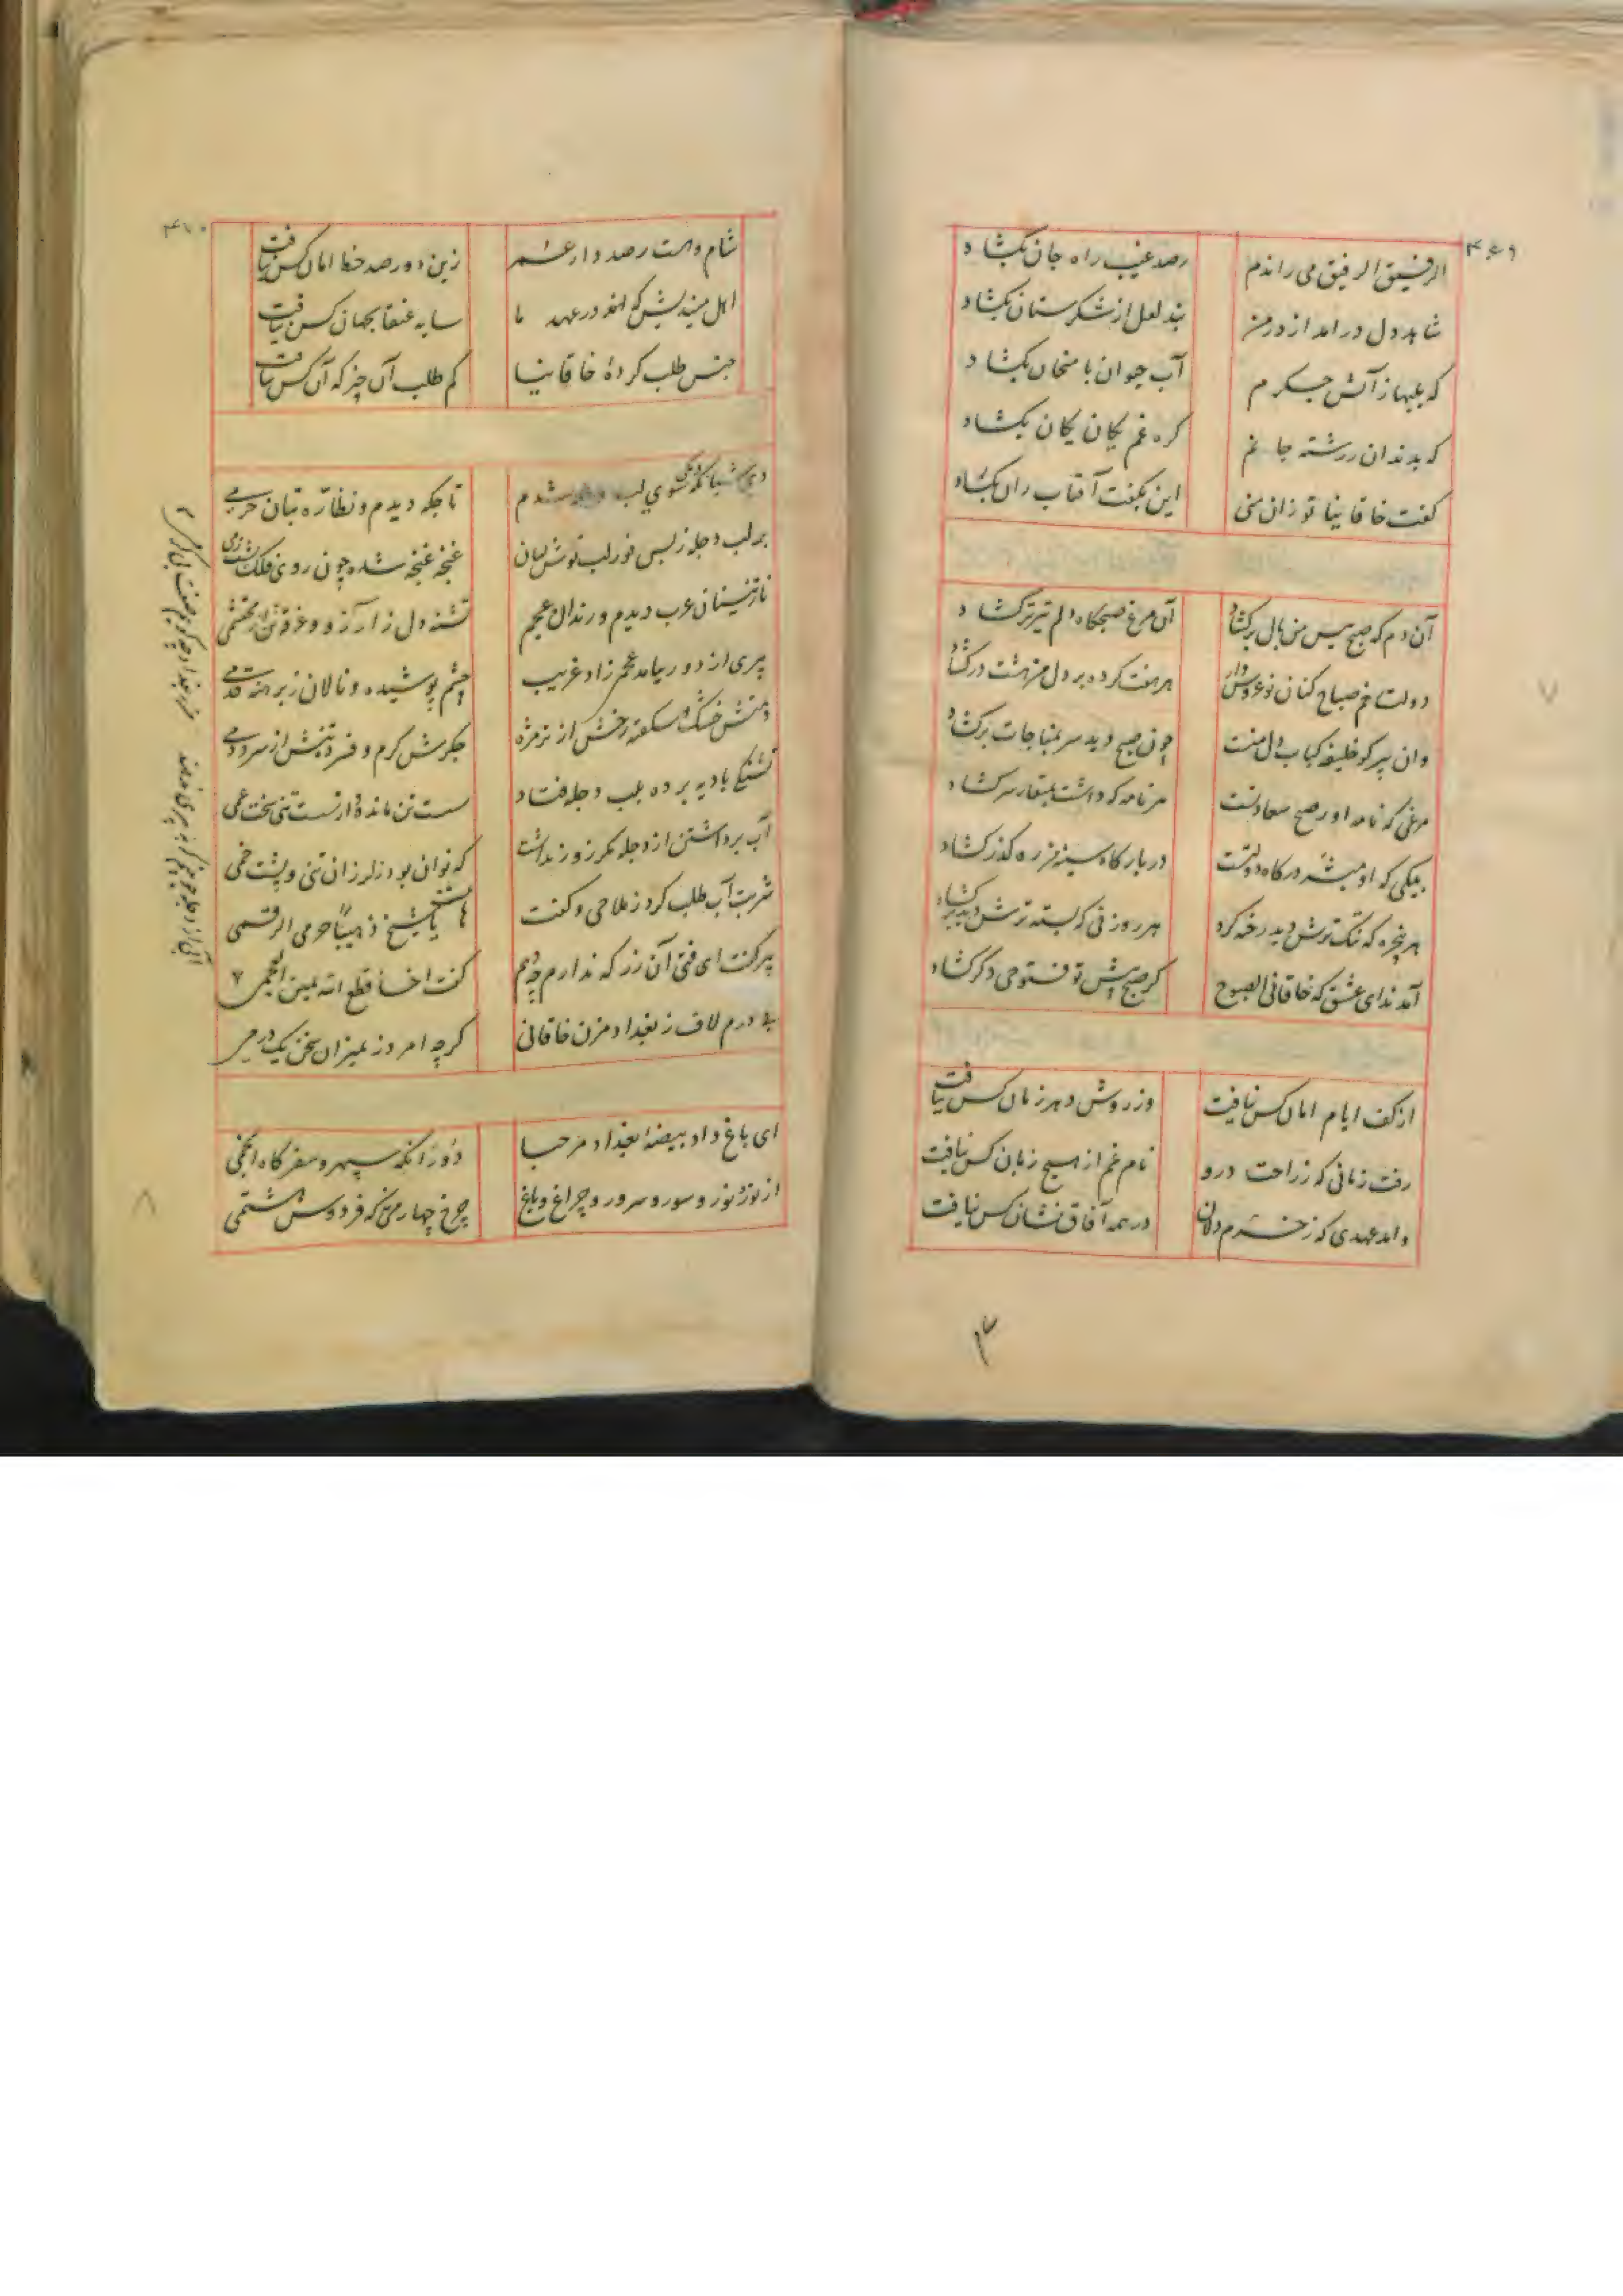 ۴۶۹
الرفیق الرفیق می راندم رصد غیب راه جان بگشاد
شاهد دل درامد از در من بند لعل از شکرستان بگشاد
که بلبها ز آتش جکرم آب حیوان بامتحان بگشاد
که بدندان ز رشته جا غم کره غم یکان یکان بگشاد
کفت خاقانیا تو زان منی این بکفت آفتاب ران بگشاد
آن دم که صبح بینش من بال برکشاد آن مرغ صبحکاه دلم تیز پر کشاد
دولت نعم صباح کنان نوعروس وار هر هفت کرده بر دل من هشت در کشاد
وان پیر کو خلیفه کتاب دل منست چون صبح دید سر بمناجات برکشاد
مرغی که نامه اور صبح سعادتست هر نامه که داشت بمنقار سر کشاد
پیکی که او مبشر درکاه دولتست در بارکاه سینه من ره کذر کشاد
هر پنجره که تنک ترش دید رخنه کرد هر روزنی که بسته ترش دید برکشاد
آمد ندای عشق که خاقانی الصبوح کز صبح بینش تو فتوحی دکر کشاد
از کف ایام امان کس نیافت وز روش دهر زمان کس نیافت
رفت زمانی که ز راحت درو نام غم از هیچ زبان کس نیافت
وامد عهدی که ز خرم دلان در همه آفاق نشان کس نیافت
۳
۷
۴۷۰
شام و سحر هست رصد دار عمر زین دو رصد خط امان کس نیافت
اهل میندیش که در عهد ما سایه عنقا بجهان کس نیافت
جنس طلب کردهٔ خاقانیا کم طلب آن چیز که آن کس نیافت
دی شبانکه بسوی لب دجله شدم تاجکه دیدم و نظاره بتان حرمی
بر لب دجله ز بس نور لب نوش لبان غنچه غنچه شده چون روی فلک
نازنینان عرب دیدم و رندان عجم تشنه دل ز آرزو و غرقه تن از محتشمی
پیری از دور بیامد عجمی زاد غریب چشم پوشیده و نالان ز برهنه قدمی
دهنش خشک و شکفته رخش از نم مژه جکرش کرم و فسرده تنش از سرد دمی
تشنکی بادیه برده بلب دجله فتاد سست تن ماندهٔ از سست تنی سخت غمی
آب برداشتن از دجله مکر زور نداشت که نوان بود ز لرزان تنی و پشت خمی
شربت آب طلب کرد ز ملاحی و کفت هات یا شیخ ذهیبا حرمی الرقمی
پیر کفت ای فتی آن زر که ندارم چه دهم کفت اخسا قطع الله یمین العجمی
بی درم لاف ز بغداد مزن خاقانی کرچه امروز بمیزان سخن یک درمی
ای باغ داد بیضهٔ بغداد مرحبا دوز انکه سپهر و سفر کاه انجمی
از نور و سور و سرور و چراغ و باغ چرخ چهارمی که فردوس هشتمی
۸